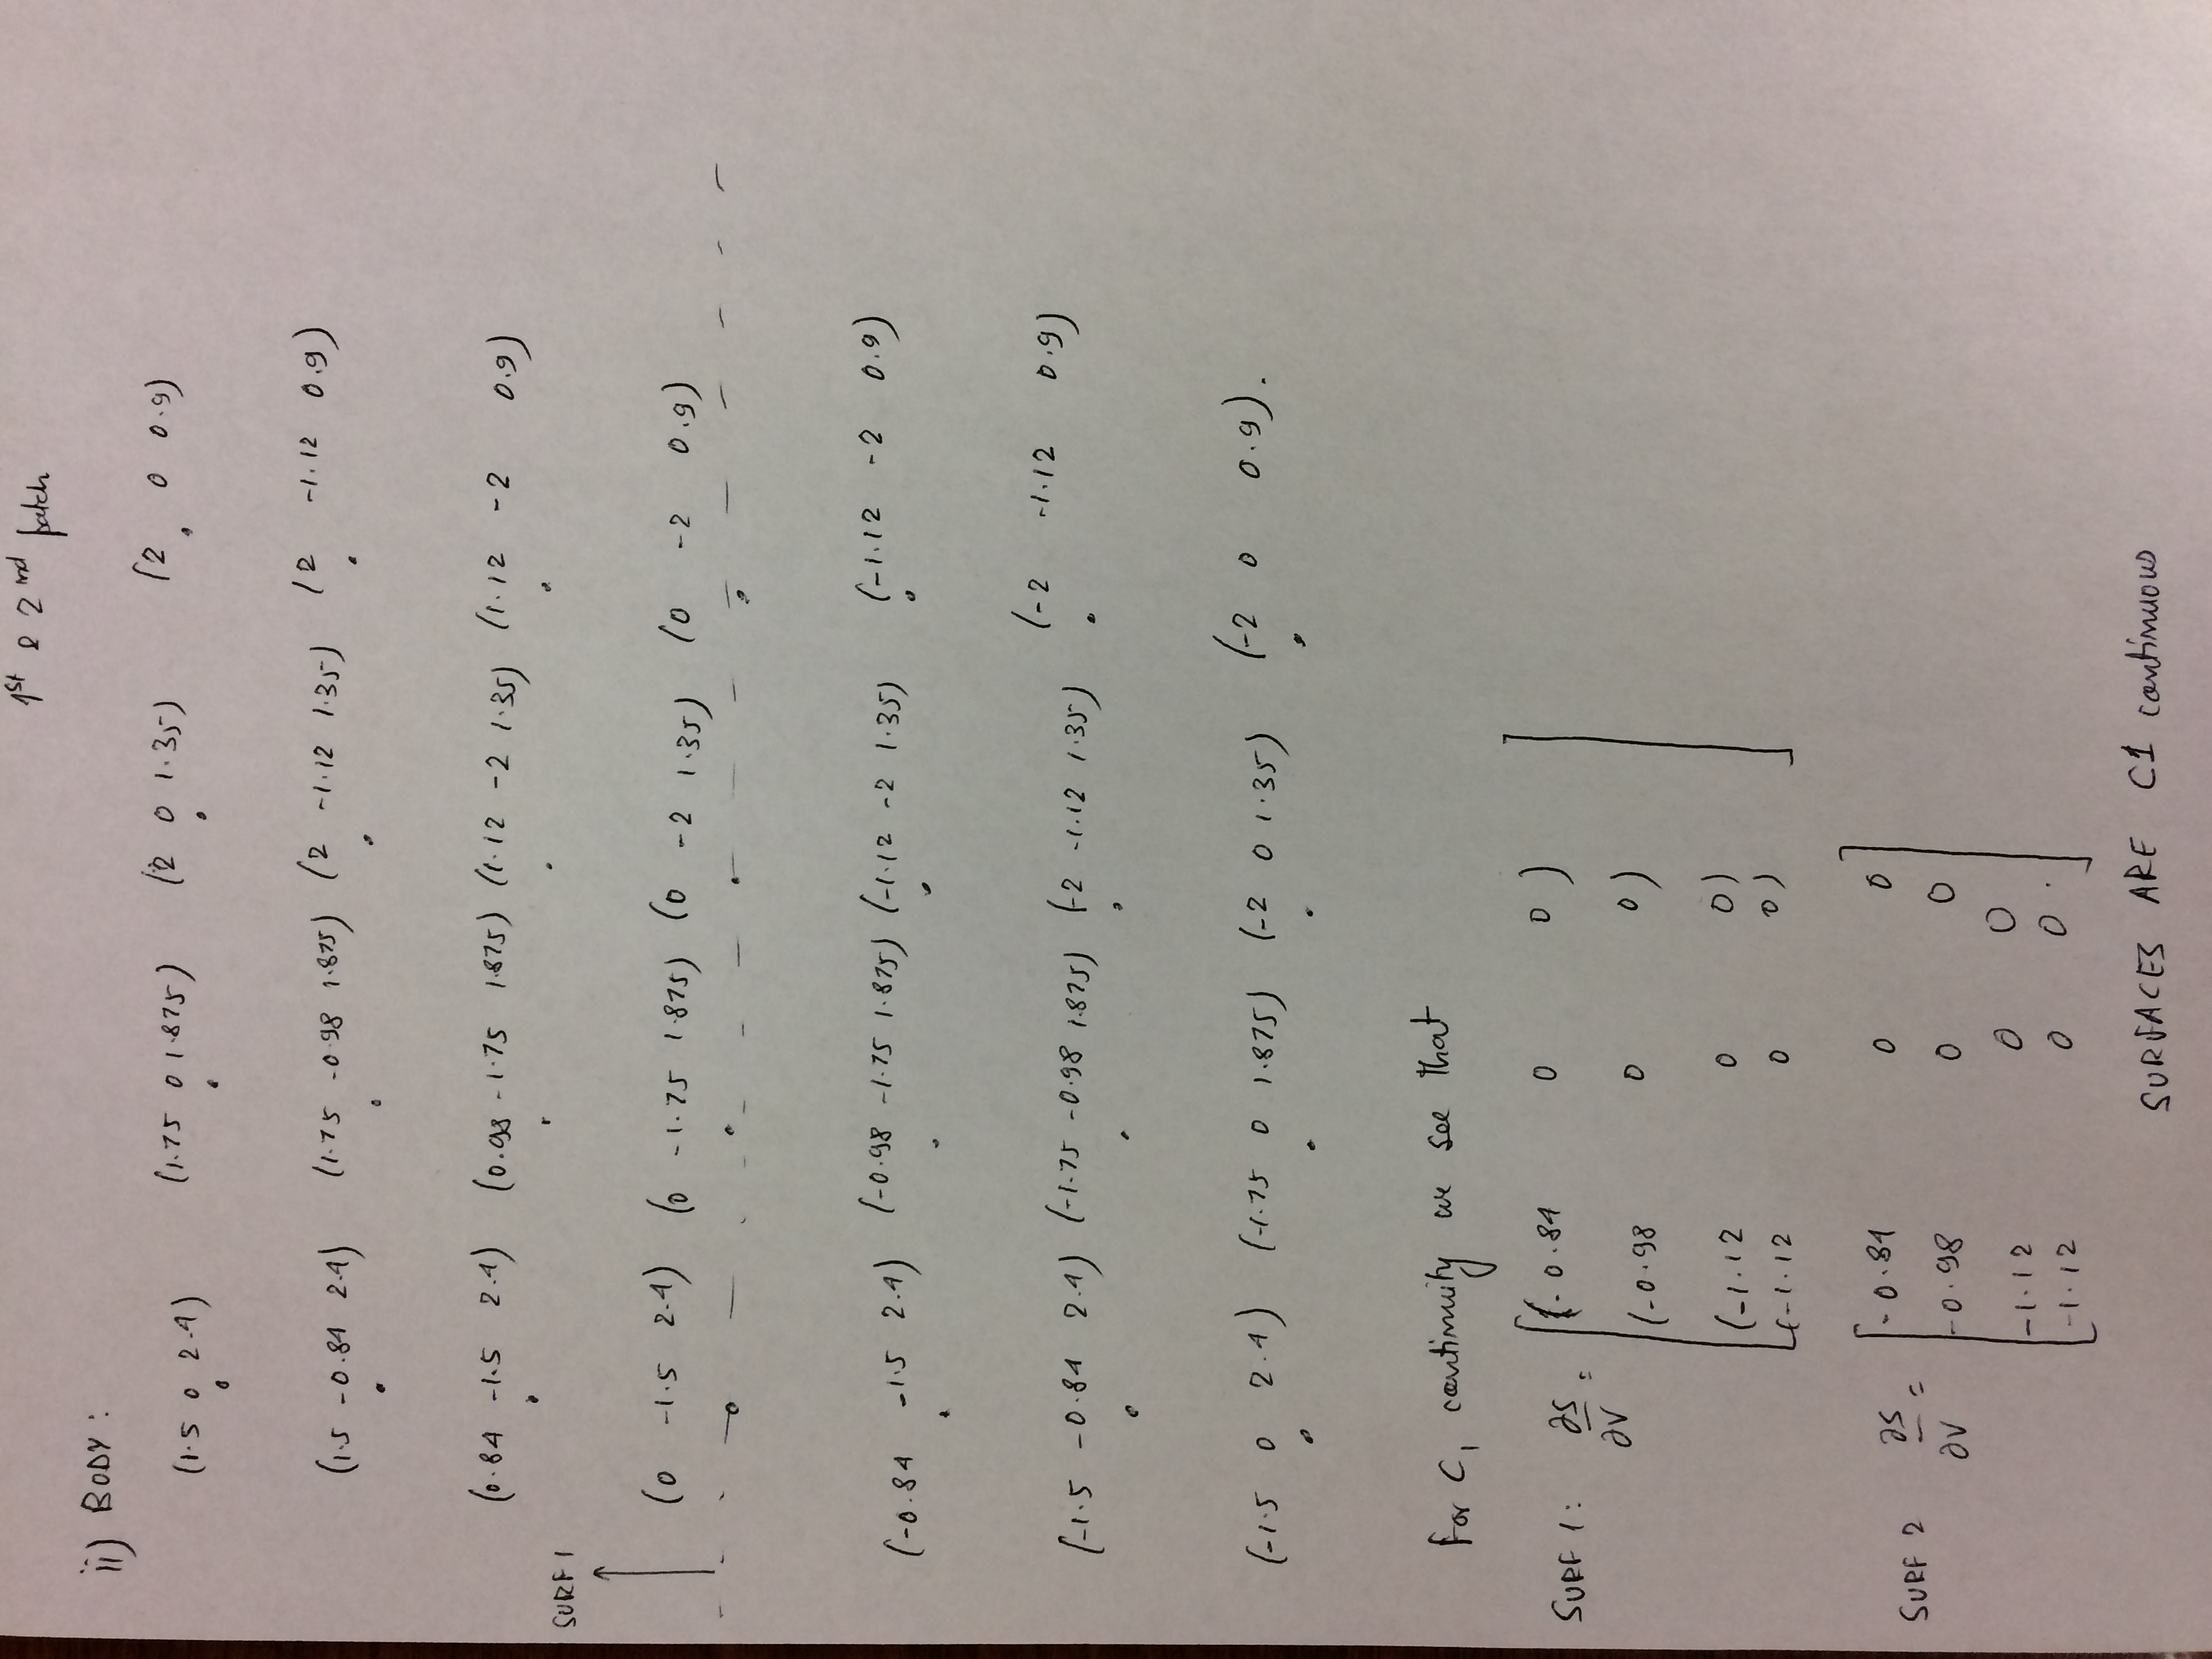 1st & 2nd patch
ii) BODY:
(1.5 0 2.4) (1.75 0 1.875) (2 0 1.35) (2 0 0.9)
(1.5 -0.84 2.4) (1.75 -0.98 1.875) (2 -1.12 1.35) (2 -1.12 0.9)
(0.84 -1.5 2.4) (0.98 -1.75 1.875) (1.12 -2 1.35) (1.12 -2 0.9)
SURF 1
(0 -1.5 2.4) (0 -1.75 1.875) (0 -2 1.35) (0 -2 0.9)
(-0.84 -1.5 2.4) (-0.98 -1.75 1.875) (-1.12 -2 1.35) (-1.12 -2 0.9)
(-1.5 -0.84 2.4) (-1.75 -0.98 1.875) (-2 -1.12 1.35) (-2 -1.12 0.9)
(-1.5 0 2.4) (-1.75 0 1.875) (-2 0 1.35) (-2 0 0.9).
for C1 continuity we see that
SURF 1: ∂S/∂V = [(-0.84 0 0)
(-0.98 0 0)
(-1.12 0 0)
(-1.12 0 0)]
SURF 2 ∂S/∂V = [-0.84 0 0
-0.98 0 0
-1.12 0 0
-1.12 0 0.]
SURFACES ARE C1 continuous